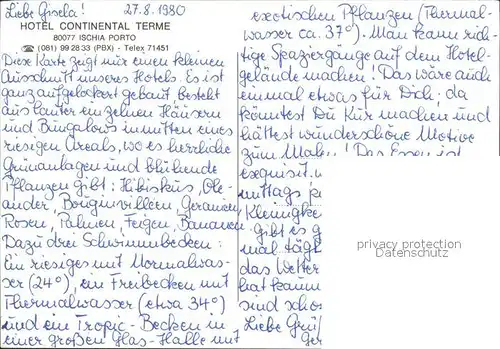 Liebe Gisela! 27.8.1980
HOTEL CONTINENTAL TERME
80077 ISCHIA PORTO
☎ (081) 99 28 33 (PBX) - Telex 71451
Diese Karte zeigt nur einen kleinen
Ausschnitt unseres Hotels. Es ist
ganz aufgelockert gebaut besteht
aus lauter einzelnen Häusern
und Bungalows inmitten eines
riesigen Areals, wo es herrliche
Grünanlagen und blühende
Pflanzen gibt: Hibiskus, Ole-
ander, Bouginvilleen, Geranien,
Rosen, Palmen, Feigen, Bananen
Dazu drei Schwimmbecken:
Ein riesiges mit Normalwas-
ser (24°), ein Freibecken mit
Thermalwasser (etwa 34°)
und ein Tropic-Becken in
einer großen Glas-Halle mit
exotischen Pflanzen (Thermal-
wasser ca. 37°). Man kann rich-
tige Spaziergänge auf dem Hotel-
gelände machen! Das wäre auch
einmal etwas für Dich; da
könntest Du Kur machen und
hättest wunderschöne Motive
zum Malen! Das Essen ist
exquisit.
mittags
Kleinigke
gibt es g
mal tägl
das Wetter
hat kaum
sind scho
Liebe Grüß
Ger
privacy protection
Datenschutz